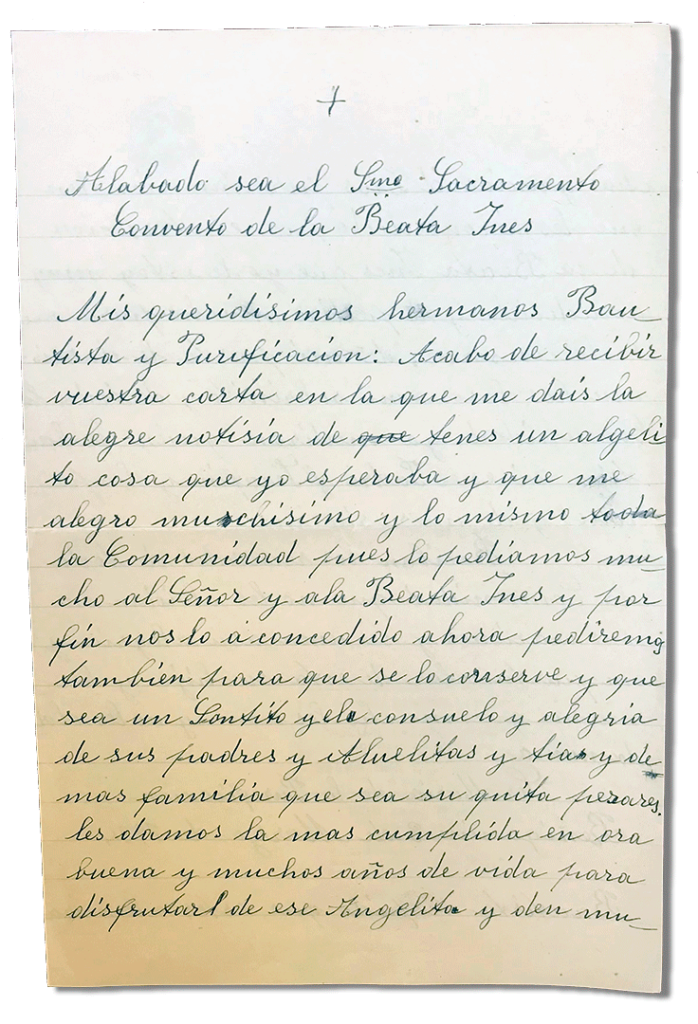 +
Alabado sea el Smo Sacramento
Convento de la Beata Ines
Mis queridisimos hermanos Bau_
tista y Purificacion: Acabo de recibir
vuestra carta en la que me dais la
alegre notisia de que tenes un algeli
to cosa que yo esperaba y que me
alegro muschisimo y lo mismo toda
la Comunidad pues lo pediamos mu_
cho al Señor y ala Beata Ines y por
fin nos lo a concedido ahora pediremos
tambien para que se lo conserve y que
sea un Santito y el consuelo y alegria
de sus padres y Abuelitas y tias y de
mas familia que sea su quita pezares.
les damos la mas cumplida en ora
buena y muchos años de vida para
disfrutarl de ese Angelito y den mu_